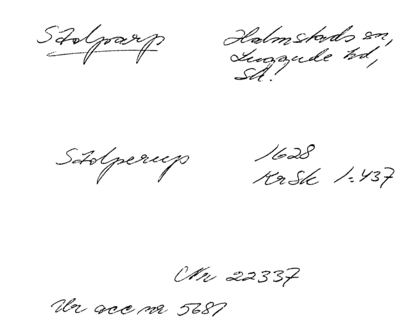 Stolparp Halmstads sn,
Luggude hd,
Sk!
Stolperup 1628
KrSk 1:437
CNr 22337
Ur acc nr 5681